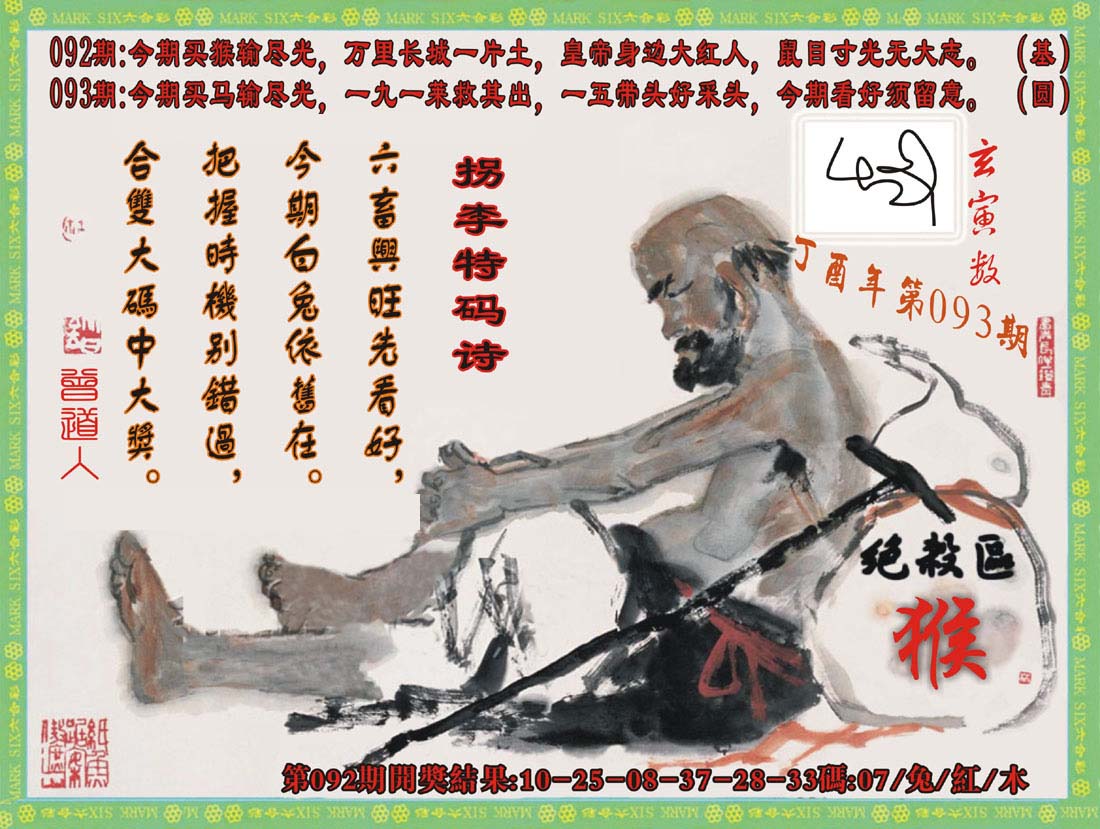 MARK SIX六合彩 MARK SIX六合彩 MARK SIX六合彩 MARK SIX六合彩 MARK SIX六合彩 MARK SIX六合彩
092期:今期买猴输尽光，万里长城一片土，皇帝身边大红人，鼠目寸光无大志。（基）
093期:今期买马输尽光，一九一莱救其出，一五带头好采头，今期看好须留意。（圆）
玄寅数
丁酉年第093期
拐李特码诗
六畜興旺先看好，
今期白兔依舊在。
把握時機别錯過，
合雙大碼中大獎。
曾道人
绝殺區
猴
第092期開獎結果:10-25-08-37-28-33碼:07/兔/紅/木